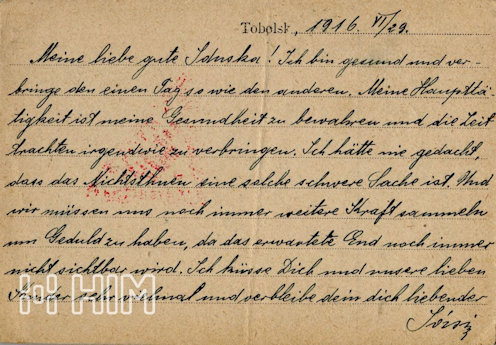 Tobolsk, 1916. VI/29.
Meine liebe gute Iduska! Ich bin gesund und ver-
bringe den einen Tag so wie den anderen. Meine Haupttä-
tigkeit ist meine Gesundheit zu bewahren und die Zeit
trachten irgendwie zu verbringen. Ich hätte nie gedacht,
dass das Nichtsthuen eine solche schwere Sache ist. Und
wir müssen uns noch immer weitere Kraft sammeln
um Geduld zu haben, da das erwartete End noch immer
nicht sichtbar wird. Ich küsse Dich und unsere lieben
Kinder sehr vielmal und verbleibe dein dich liebender
HIM